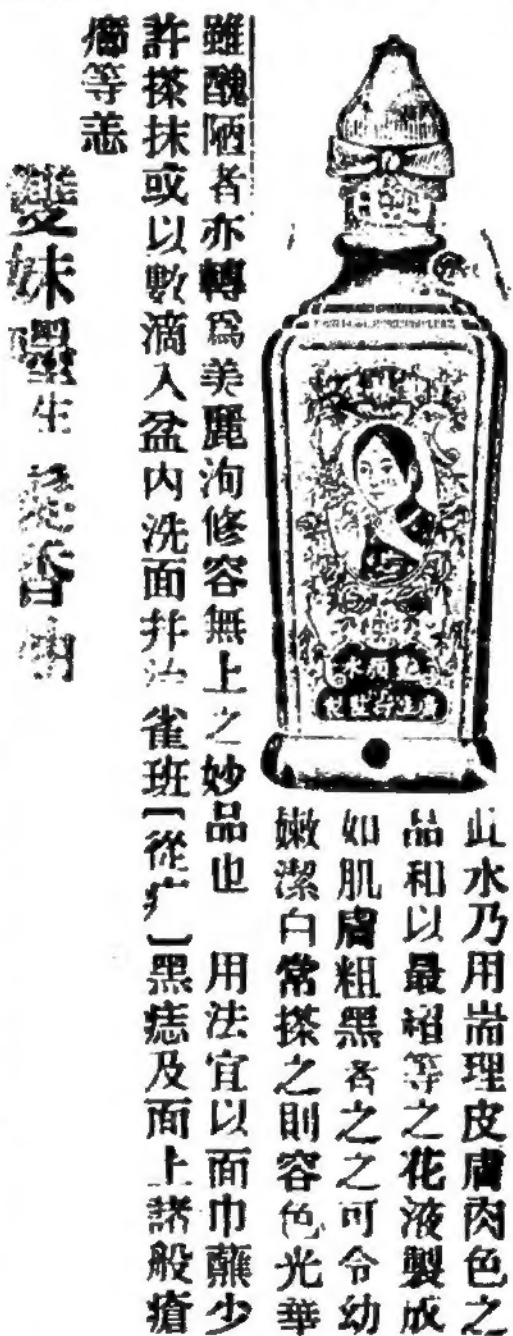 此水乃用耑理皮膚肉色之
品和以最超等之花液製成
如肌膚粗黑者之之可令幼
嫩潔白常搽之則容色光華
雖醜陋者亦轉為美麗洵修容無上之妙品也 用法宜以面巾蘸少
許搽抹或以數滴入盆內洗面并治雀班[從疒]黑痣及面上諸般瘡
等恙
雙妹嘜生髮香
艷顏水
廣生行監製